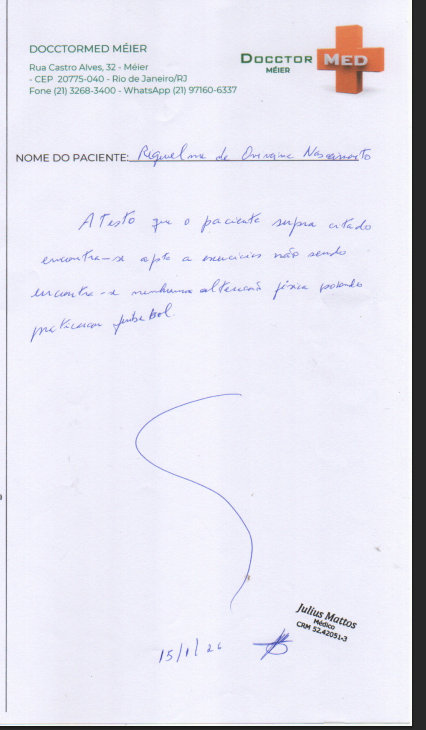 DOCCTORMED MÉIER
Rua Castro Alves, 32 - Méier
- CEP 20775-040 - Rio de Janeiro/RJ
Fone (21) 3268-3400 - WhatsApp (21) 97160-6337
DOCCTOR MED
MÉIER
NOME DO PACIENTE: de Nascimento
Atesto que o paciente supra citado
encontra-se apto a exercicios não sendo
encontra-se nenhuma alteração física podendo
praticar futebol.
Julius Mattos
Médico
CRM 52.42051-3
15/1/26